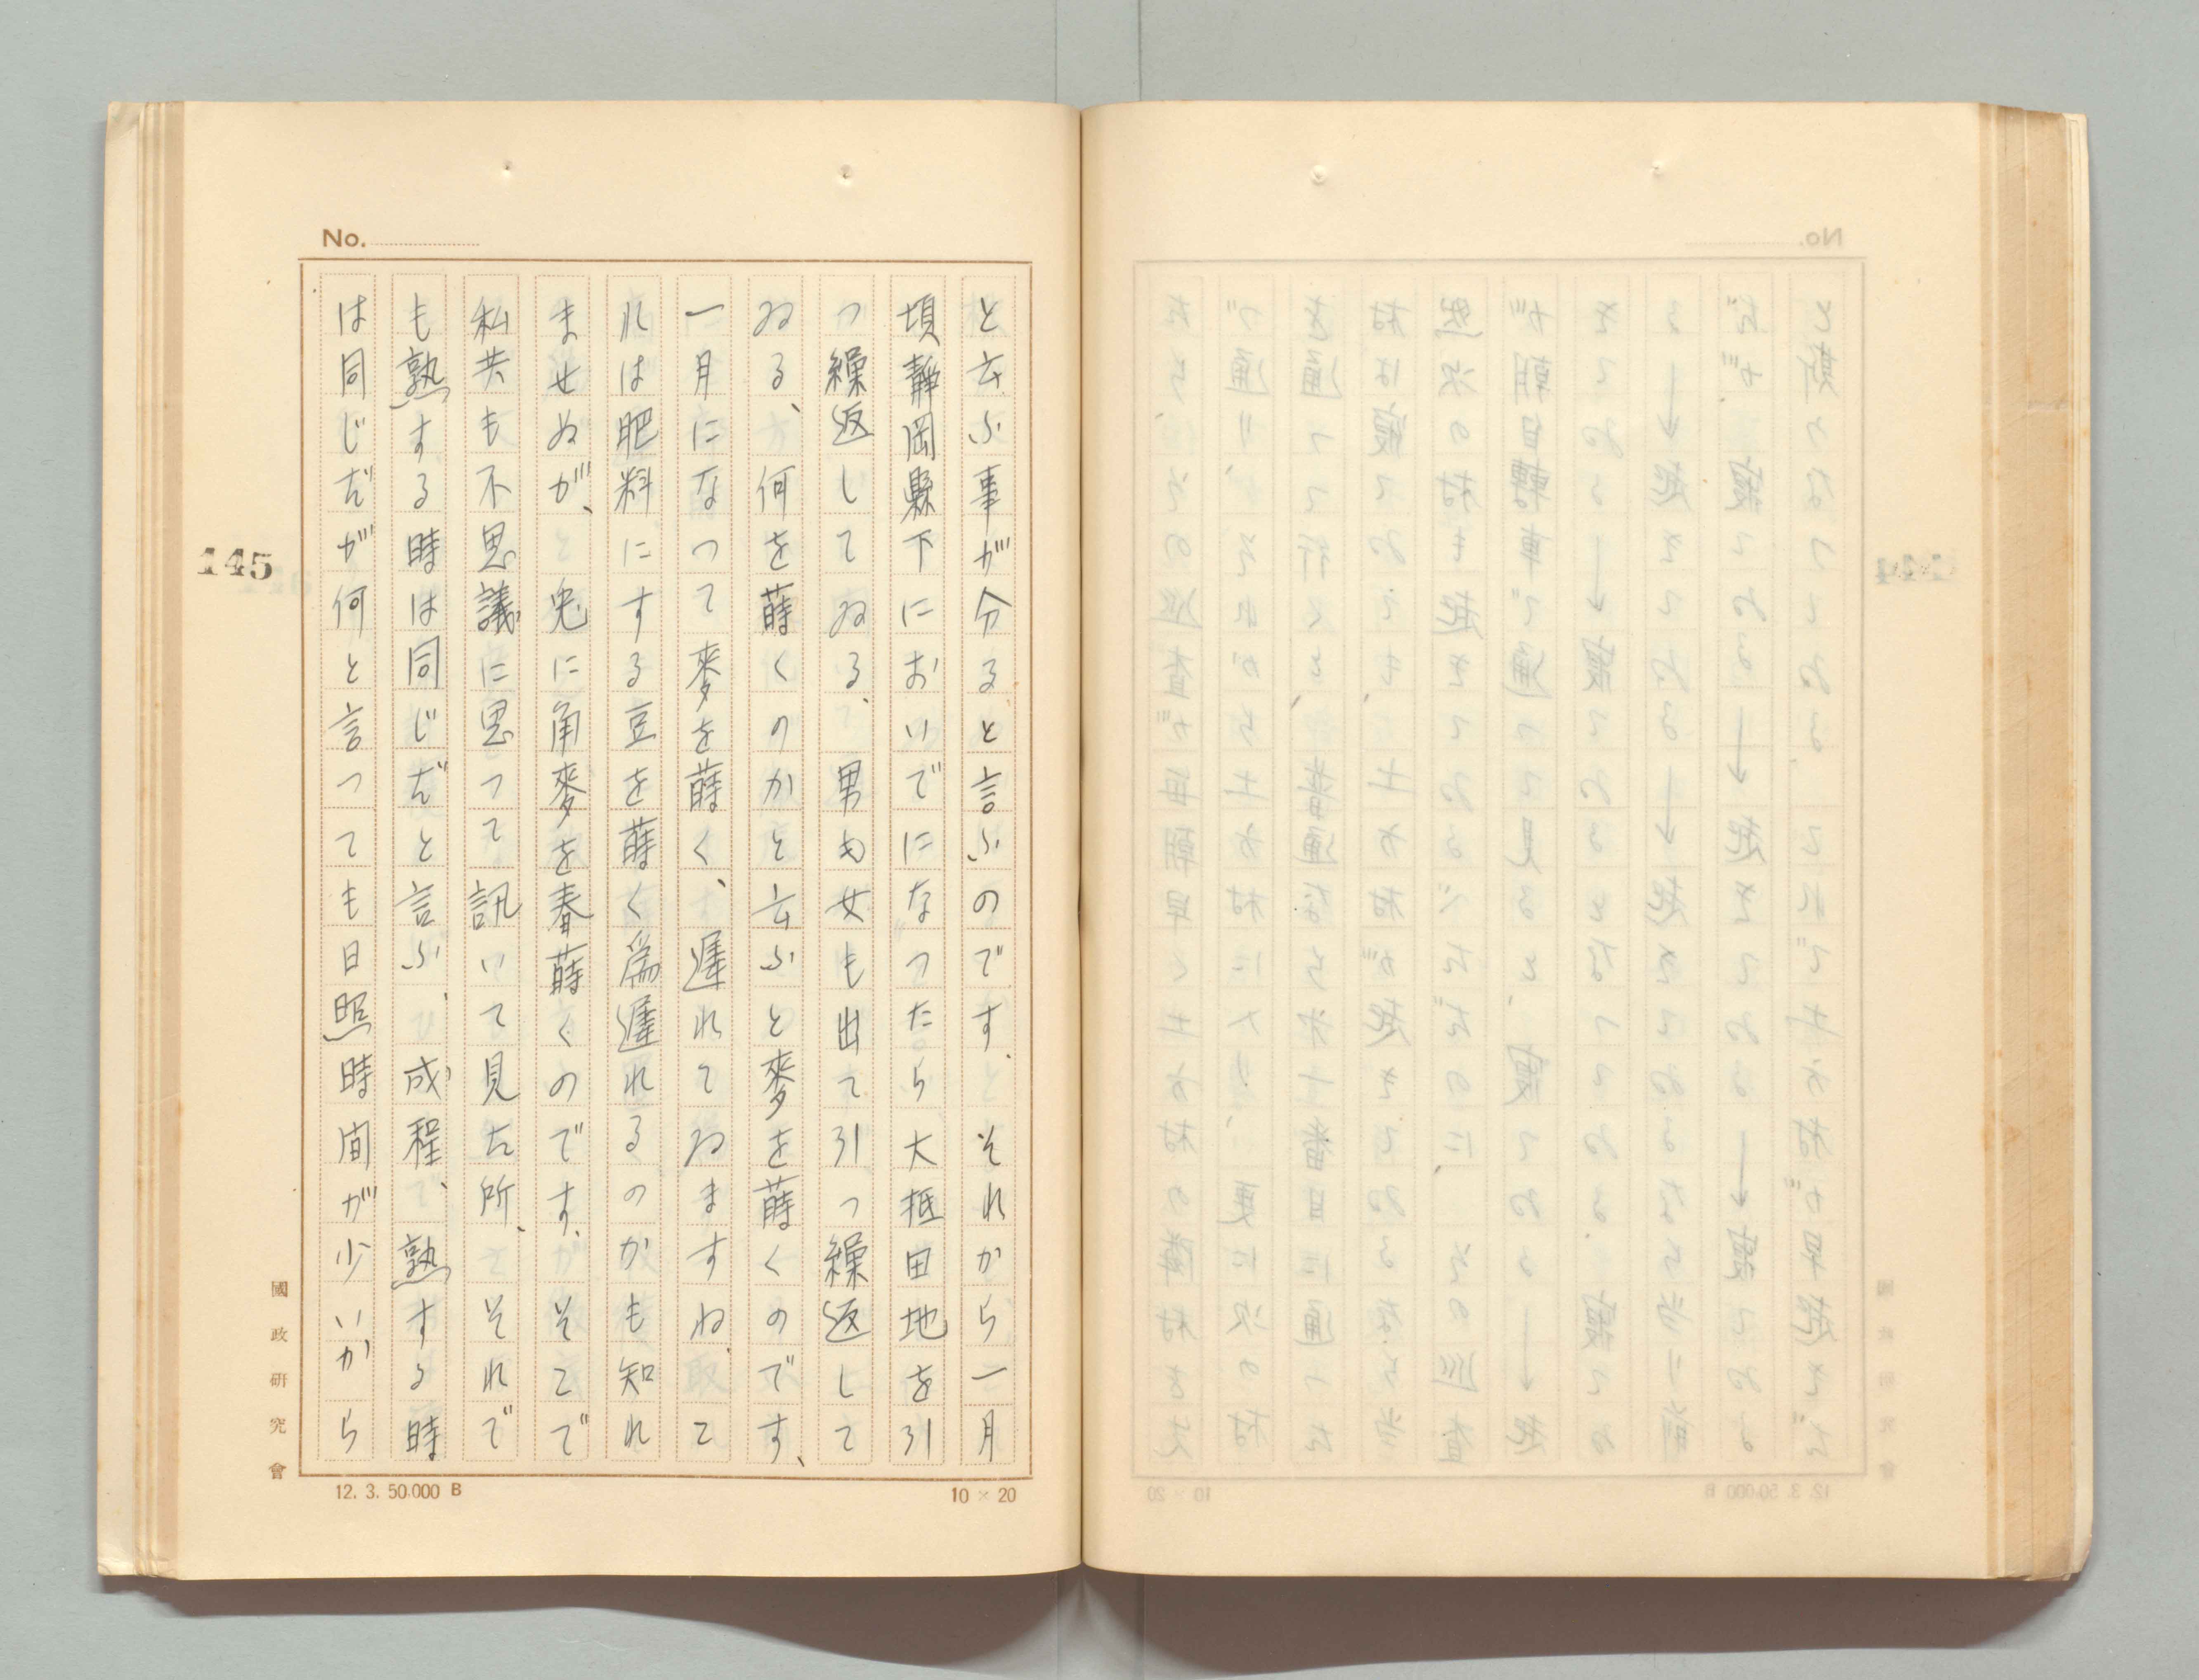 No.
と云ふ事が分ると言ふのです、それから一月
頃靜岡縣下においでになつたら、大抵田地を引
つ繰返してゐる、男も女も出て引つ繰返して
ゐる、何を蒔くのかと云ふと麥を蒔くのです、
一月になつて麥を蒔く、遲れてゐますね、こ
れは肥料にする豆を蒔く爲遲れるのかも知れ
ませぬが、兎に角麥を春蒔くのです、そこで
私共も不思議に思つて訊いて見た所、それで
も熟する時は同じだと言ふ、成程、熟する時
は同じだが何と言つても日照時間が少いから
145
國政研究會
12. 3. 50.000 B
10 × 20